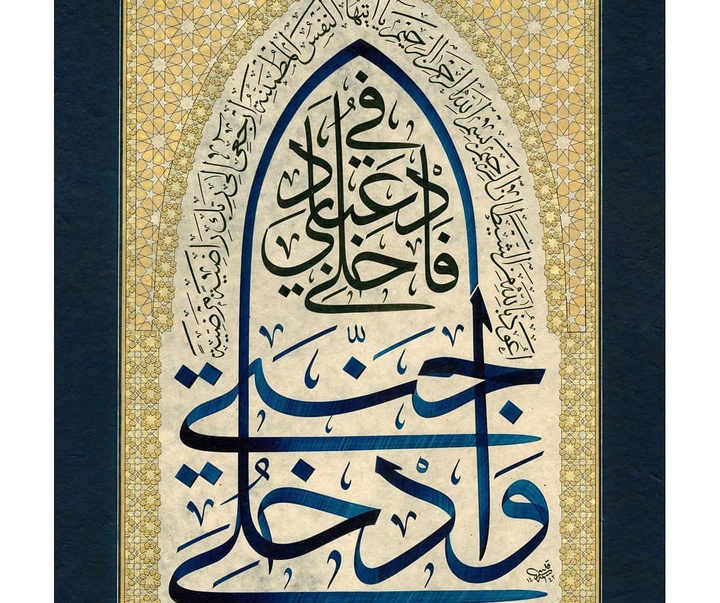 أعوذ بالله من الشيطان الرجيم بسم الله الرحمن الرحيم يا أيتها النفس المطمئنة ارجعي إلى ربك راضية مرضية
فادخلي في عبادي
وادخلي جنتي